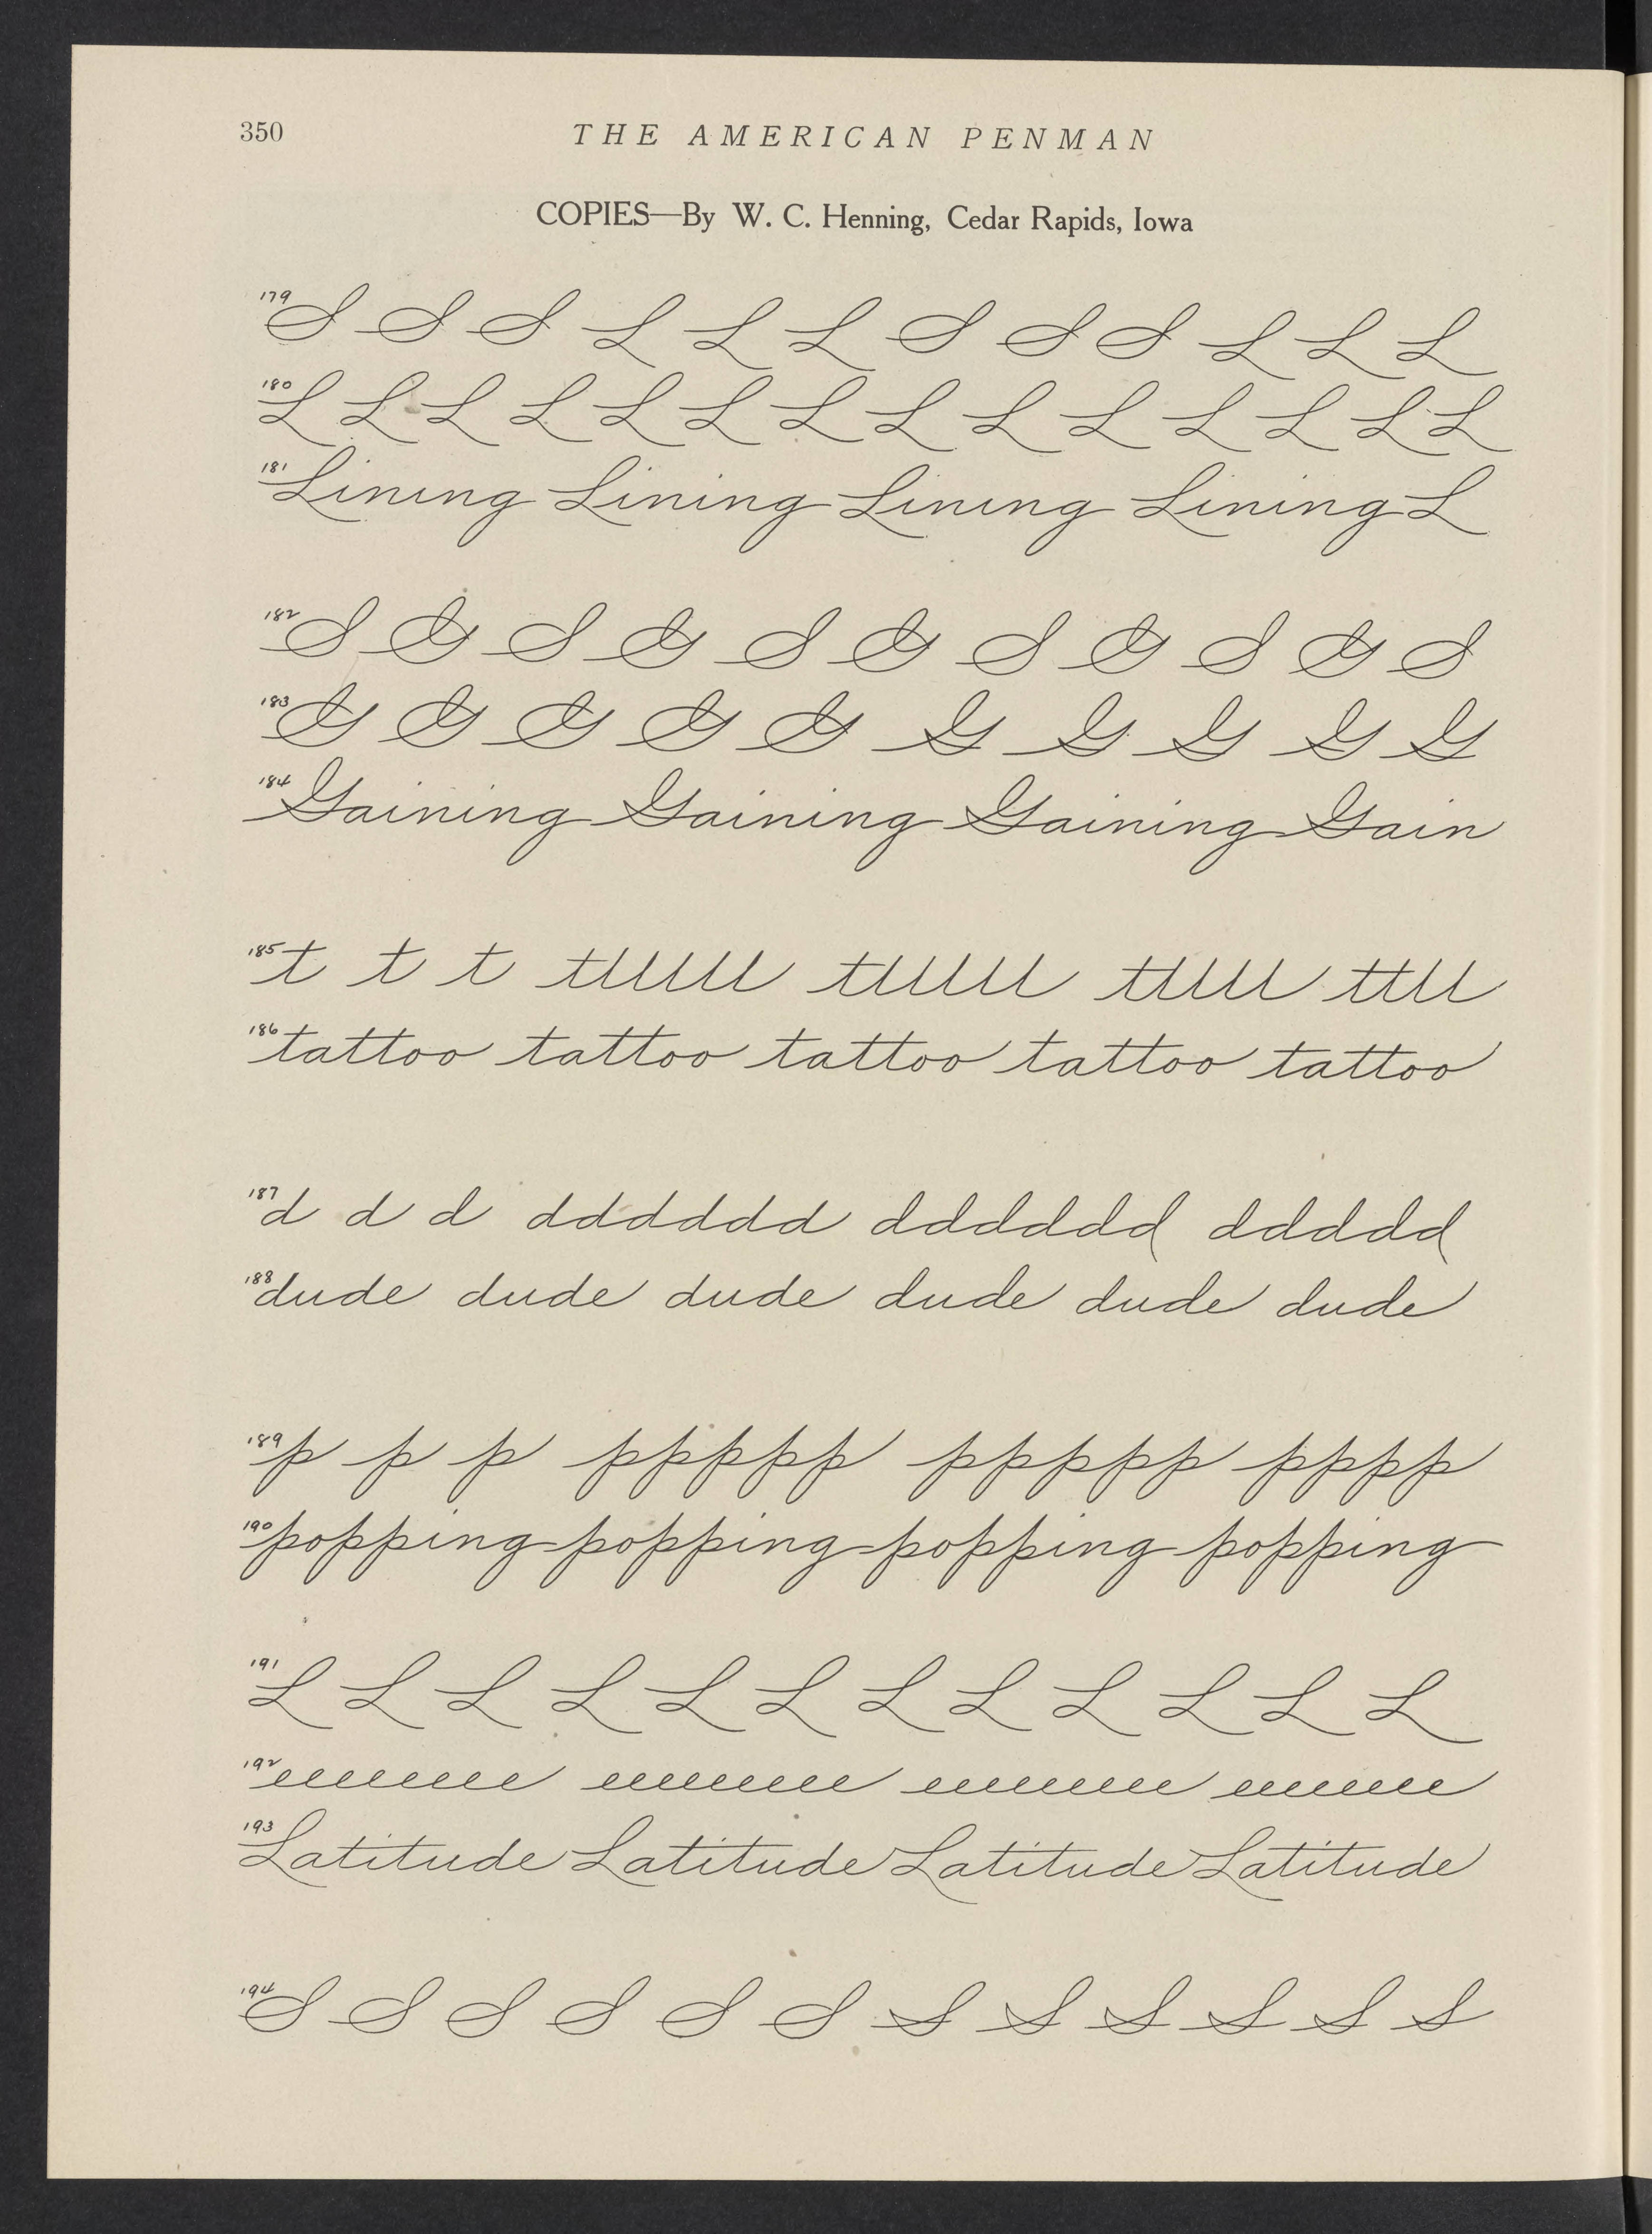 350
THE AMERICAN PENMAN
COPIES—By W. C. Henning, Cedar Rapids, Iowa
179 S S S L L L S S S L L L
180 L L L L L L L L L L L L L L
181 Lining Lining Lining Lining L
182 S G S G S G S G S G S
183 G G G G G G G G G G
184 Gaining Gaining Gaining Gain
185 t t t tttttt tttttt ttttt tttt
186 tattoo tattoo tattoo tattoo tattoo
187 d d d ddddddd ddddddd dddddd
188 dude dude dude dude dude dude
189 p p p ppppp ppppp pppp
190 popping popping popping popping
191 L L L L L L L L L L L L
192 eeeeeeeee eeeeeeeee eeeeeeeee eeeeeeee
193 Latitude Latitude Latitude Latitude
194 S S S S S S S S S S S S